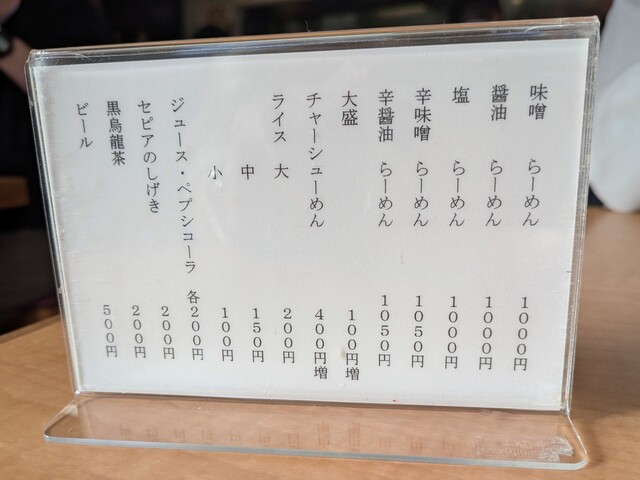 味噌 らーめん 1000円
醤油 らーめん 1000円
塩 らーめん 1000円
辛味噌 らーめん 1050円
辛醤油 らーめん 1050円
大盛 100円増
チャーシューめん 400円増
ライス 大 200円
中 150円
小 100円
ジュース・ペプシコーラ 各200円
セピアのしげき 200円
黒烏龍茶 200円
ビール 500円